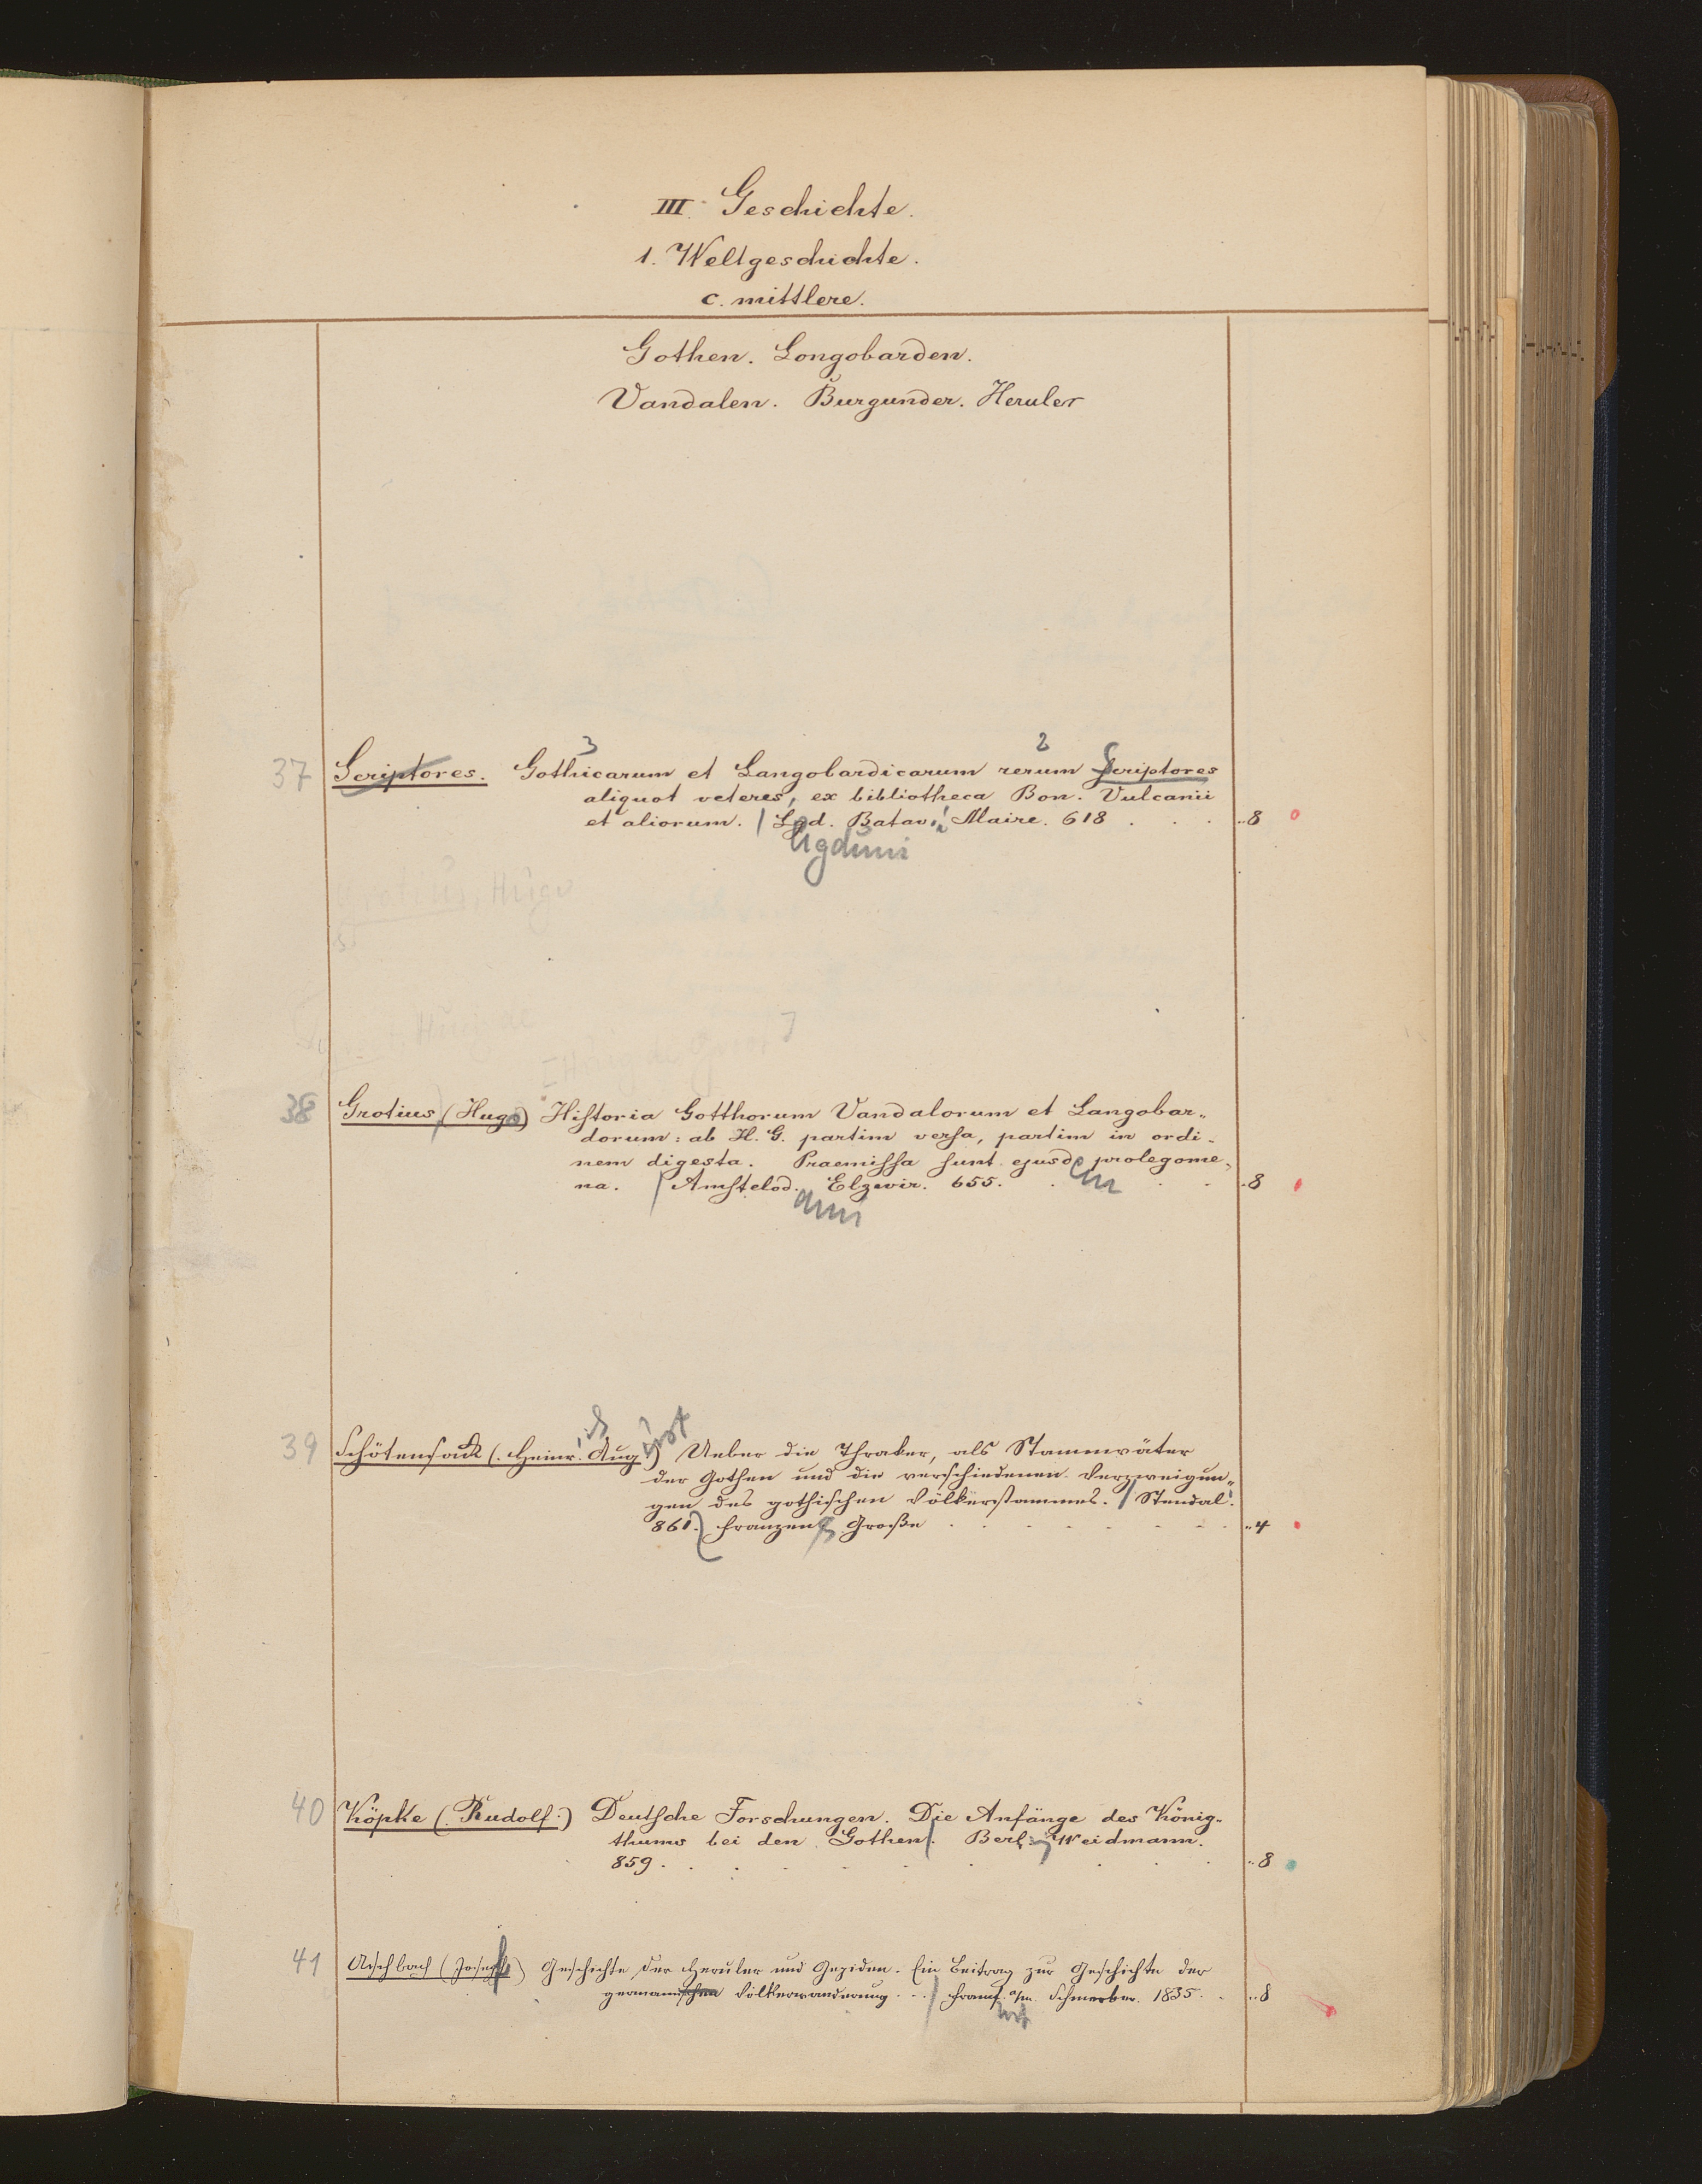 III. Geschichte.
1. Weltgeschichte.
c. mittlere.
Gothen. Longobarden.
Vandalen. Burgunder. Heruler
3 2
37 Scriptores. Gothicarum et Langobardicarum rerum Scriptores
aliquot veteres, ex bibliotheca Bon. Vulcanii
et aliorum. | Lgd. Batav. Maire. 618 . . . „8
ugduni
Grotius, Hugo
38 Grotius (Hugo) Historia Gotthorum Vandalorum et Langobar-
dorum: ab H. G. partim versa, partim in ordi-
nem digesta. Praemissa sunt ejusd. prolegome-
em
na. | Amstelod. Elzevir. 655. . . . „8
ami
ich ust
39 Schötensack (Heinr. Aug.) Ueber die Thraker, als Stammväter
der Gothen und die verschiedenen Verzweigun-
gen des gothischen Völkerstammes. | Stendal.
861. Franzen & Große . . . . . . „4
40 Köpke (Rudolf.) Deutsche Forschungen. Die Anfänge des König-
thums bei den Gothen. Berl: Weidmann.
859. . . . . . . „8
41 Aschbach (Joseph) Geschichte der Heruler und Gepiden. Ein Beitrag zur Geschichte der
germanischen Völkerwanderung. . . | Franf. a/m. Schmerber. 1835. . „8